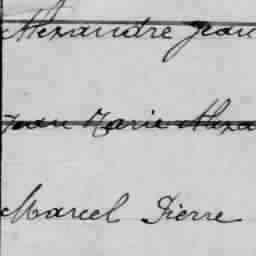 Alexandre Jean
Jean Marie Alexa
Marcel Pierre